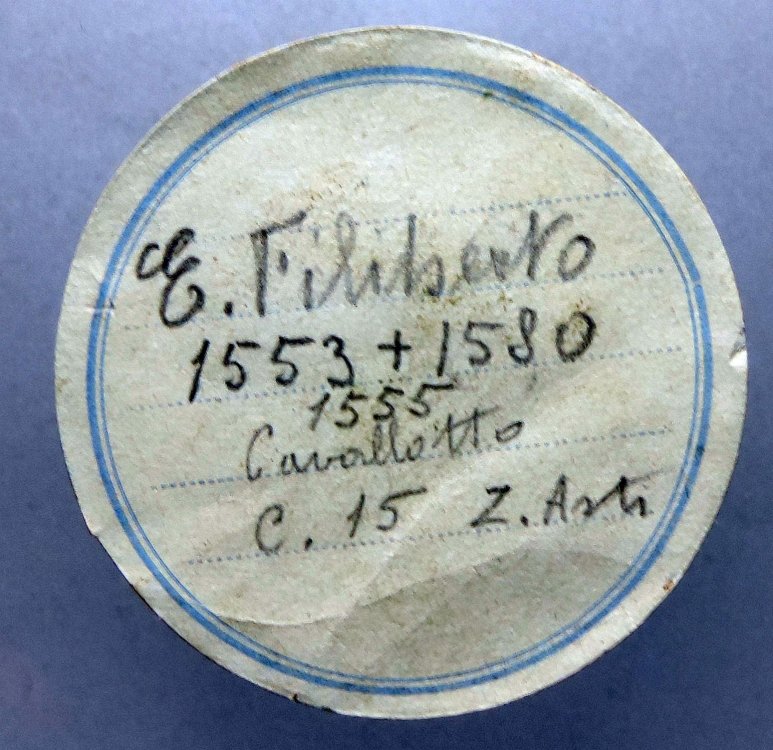 E. Filiberto
1553 + 1580
1555
Cavallotto
C. 15 Z. Asti